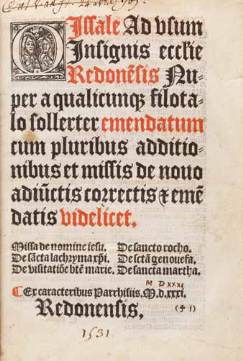 MIssale Ad vsum
Insignis ecclie
Redonēsis Nu-
per a qualicunq̃ filota-
lo sollerter emendatum
cum pluribus additio-
nibus et missis de nouo
adiūctis correctis ⁊ emē
datis videlicet.
Missa de nomine iesu. De sancto rocho.
De sācta lachryma xp̄i. De sctā genouefa.
De visitatiōe bt̄e marie. De sancta martha.
M D XXXI
¶ Ex caracteribus Parrhisiis. M.d.xxxi.
Redonensis.
1531